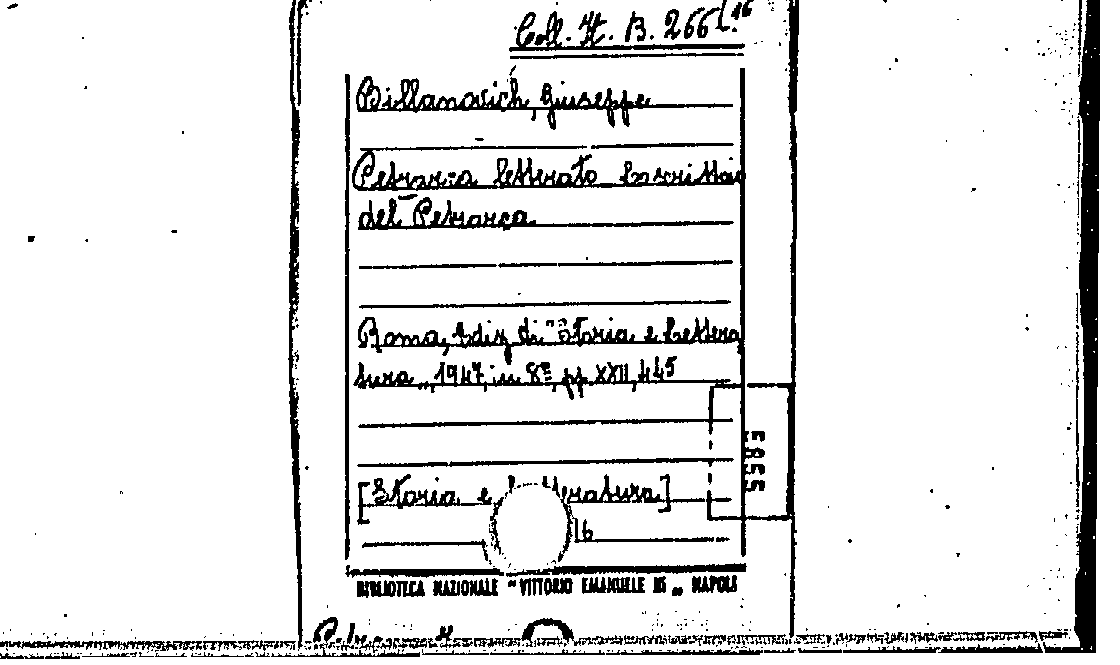 Coll. It. B. 266 (16
Billanovich, Giuseppe
Petrarca letterato Lo scrittoio
del Petrarca
Roma, Ediz. di "Storia e Lettera
tura", 1947, in 8º, pp. XXII, 445
[Storia e letteratura]
16
BIBLIOTECA NAZIONALE "VITTORIO EMANUELE III" NAPOLI